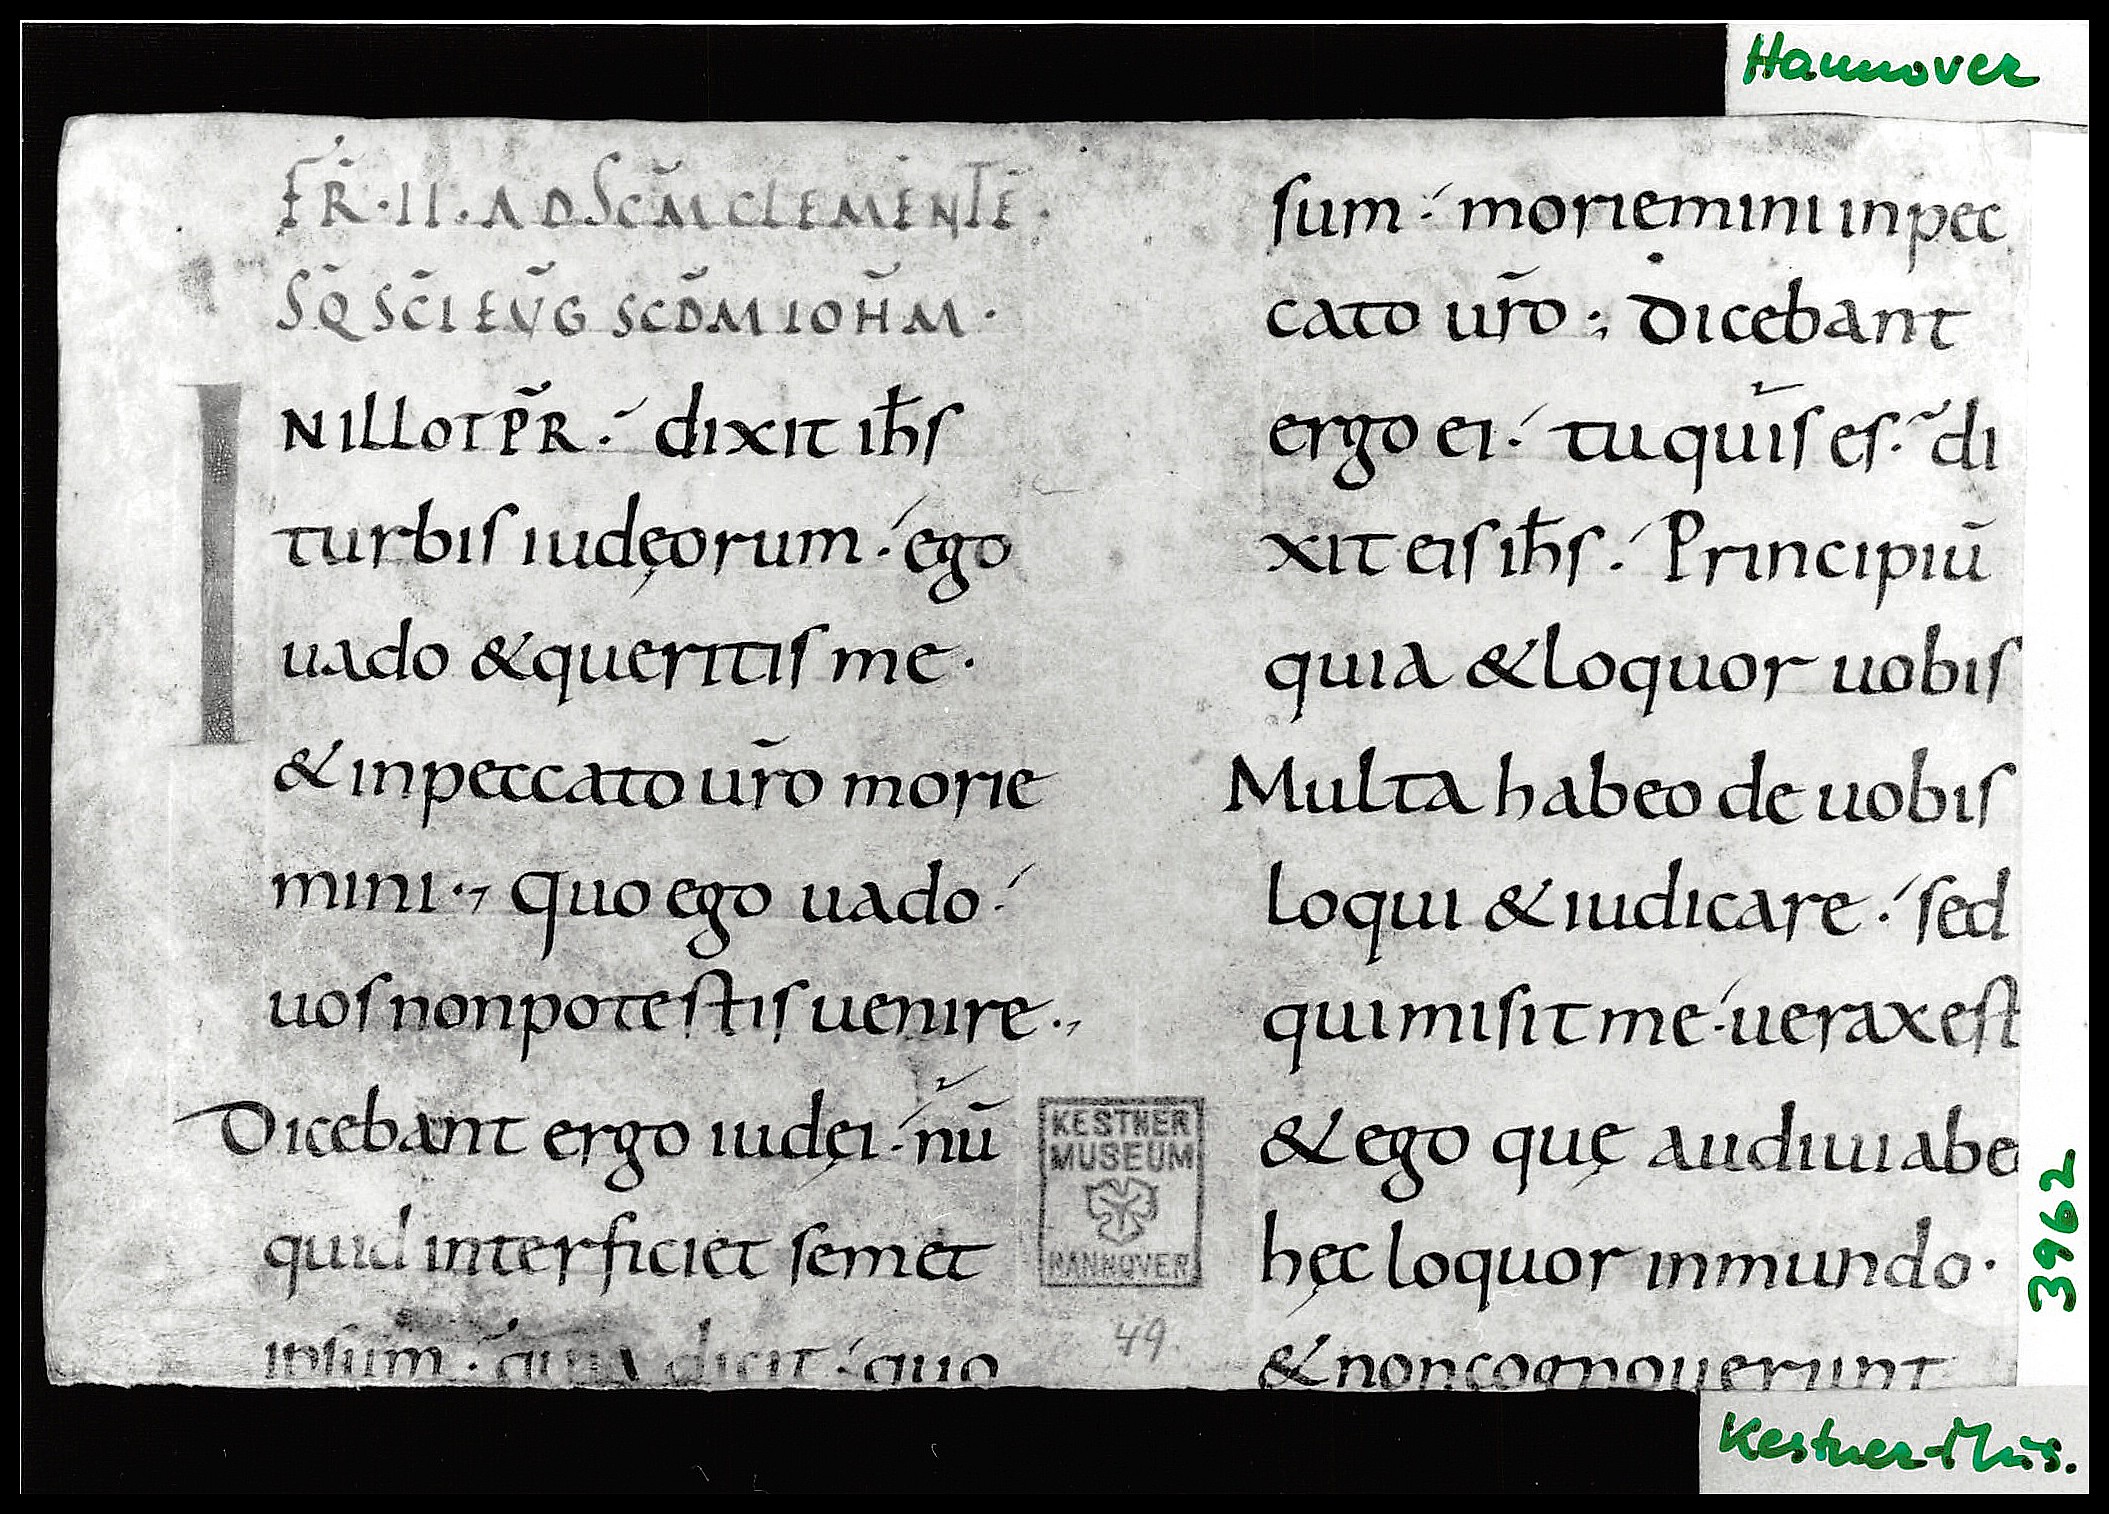 Hannover
FR̄·II·AD SCM̄ CLEMENTĒ·
SQ̄ SC̄I EV̄G SCDM̄ IOH̄M·
IN ILLO TP̄R· dixit ih̄s
turbis iudęorum· ego
uado & queritis me·
& in peccato ur̄o morie
mini·, quo ego uado·
uos non potestis uenire·,
Dicebant ergo iudęi· nū
quid interficiet semet
ipsum· quia dicit· quo
sum· moriemini in pec
cato ur̄o ·, Dicebant
ergo ei· tu quis es· di
xit eis ih̄s· Principiū
quia & loquor uobis
Multa habeo de uobis
loqui & iudicare· sed
qui misit me· uerax est
& ego quę audiui ab eo
hęc loquor in mundo·
& non cognouerunt
KESTNER
MUSEUM
HANNOVER
49
3962
Kestner-Mus.